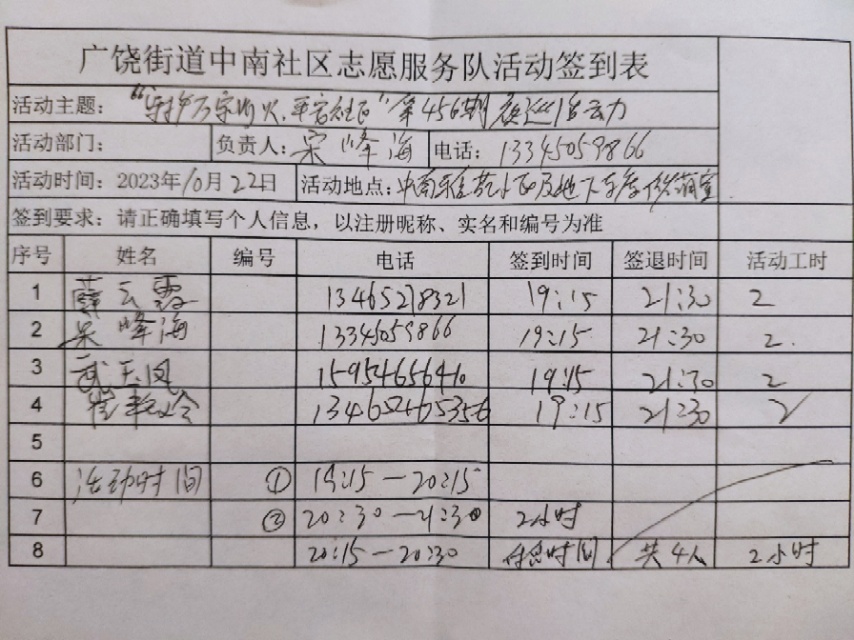 广饶街道中南社区志愿服务队活动签到表
活动主题：“守护万家灯火，平安社区”第456期夜巡活动
活动部门： 负责人：宋峰海 电话：13345059866
活动时间：2023年10月22日 活动地点：中南雅苑小区及地下车库
签到要求：请正确填写个人信息，以注册昵称、实名和编号为准
序号 姓名 编号 电话 签到时间 签退时间 活动工时
1 薛云霞 13465278321 19:15 21:30 2
2 宋峰海 13345059866 19:15 21:30 2
3 武玉凤 15954656410 19:15 21:30 2
4 19:15 21:30 2
5
6 活动时间 ① 19:15—20:15
7 ② 20:30—21:30 2小时
8 20:15—20:30 休息时间 共4人 2小时